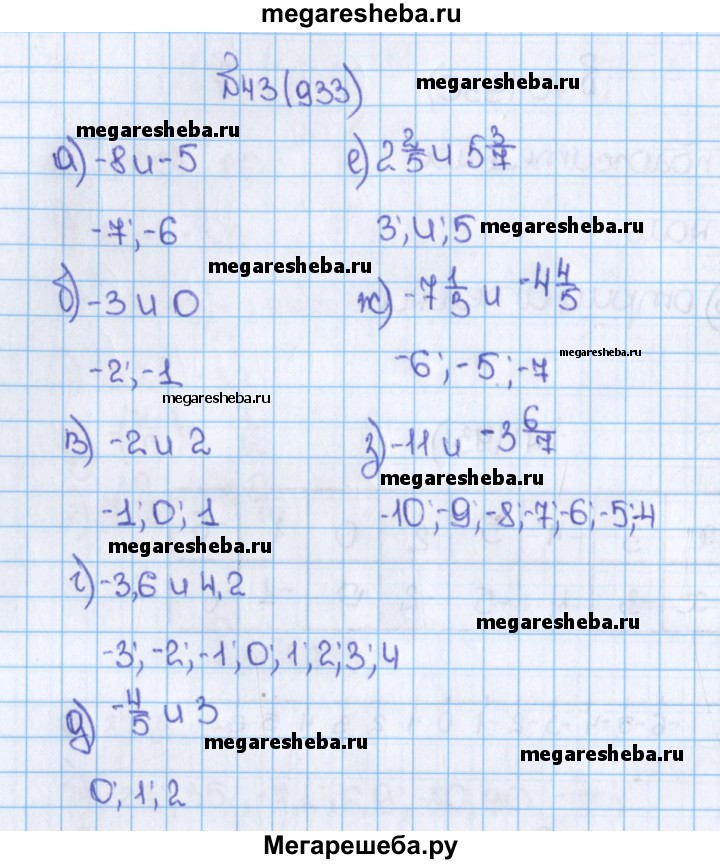 megaresheba.ru
№43(933)
megaresheba.ru
megaresheba.ru
а) -8 и -5
-7; -6
megaresheba.ru
б) -3 и 0
-2; -1
megaresheba.ru
в) -2 и 2
-1; 0; 1
megaresheba.ru
г) -3,6 и 4,2
-3; -2; -1; 0; 1; 2; 3; 4
д) -4/5 и 3
megaresheba.ru
0; 1; 2
е) 2 2/5 и 5 3/7
3; 4; 5
megaresheba.ru
ж) -7 1/3 и -4 4/5
-6; -5; -7
megaresheba.ru
з) -11 и -3 6/7
megaresheba.ru
-10; -9; -8; -7; -6; -5; -4
megaresheba.ru
megaresheba.ru
Мегарешеба.ру